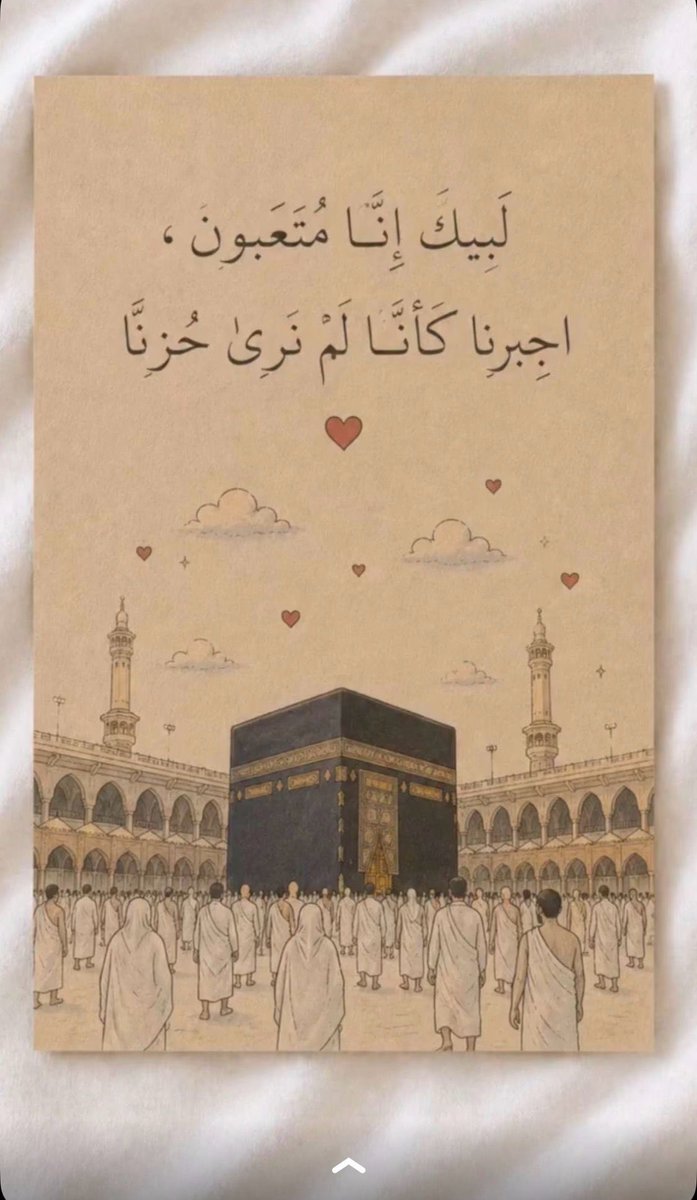 لَبِيكَ إِنَّـا مُتَعَبونَ ،
اجِبرنِا كَأنَّـا لَمْ نَرِىٰ حُزنَّا